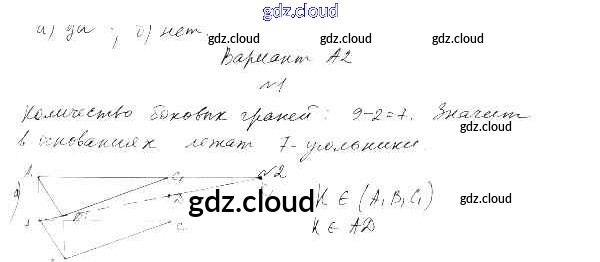 gdz.cloud
а) да ; б) нет.
gdz.cloud gdz.cloud
Вариант А2
№1
Количество боковых граней: 9-2=7. Значит
gdz.cloud
в основаниях лежат 7-угольники.
№2
C₁
а)
D
K ∈ (A₁B₁C₁)
gdz.cloud gdz.cloud
C
K ∈ AD
gdz.cloud